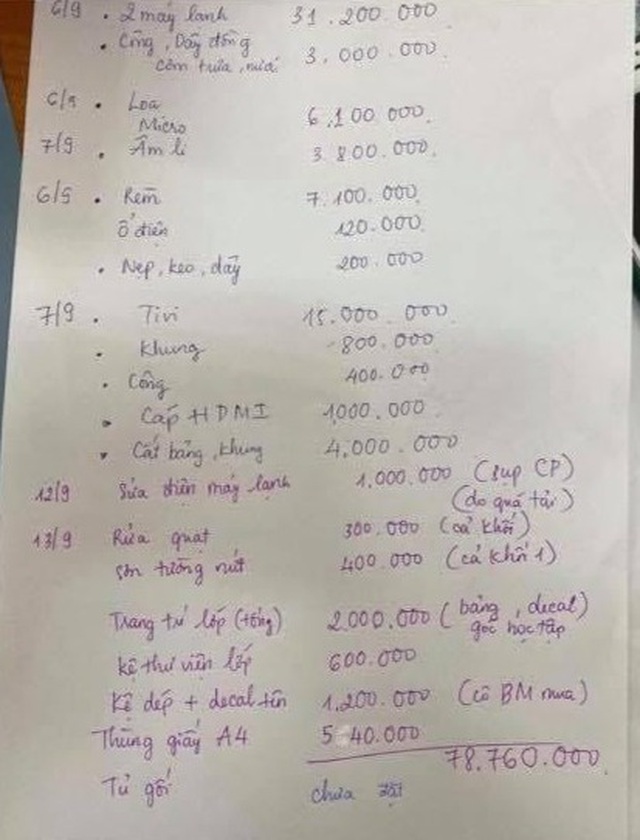 6/9 . 2 máy lạnh 31.200.000
. Công, Dây đồng 3.000.000.
cơm trưa, nước
6/9 . Loa
Micro 6.100.000.
7/9 . Âm li 3.800.000.
6/9 . Rèm 7.100.000.
Ổ điện 120.000.
. Nẹp, keo, dây 200.000
7/9 . Tivi 15.000.000.
. Khung 800.000.
. Công 400.000
. Cáp HDMI 1.000.000.
. Cắt bảng, khung 4.000.000
12/9 Sửa điện máy lạnh 1.000.000 (sup CP)
(do quá tải)
13/9 Rửa quạt 300.000 (cả khối)
Sơn tường nứt 400.000 (cả khối 1)
Trang trí lớp (tổng) 2.000.000 (bảng, decal)
góc học tập
Kệ thư viện lớp 600.000
Kệ dép + decal tên 1.200.000 (cô BM mua)
Thùng giấy A4 540.000
78.760.000.
Tủ gối chưa đặt